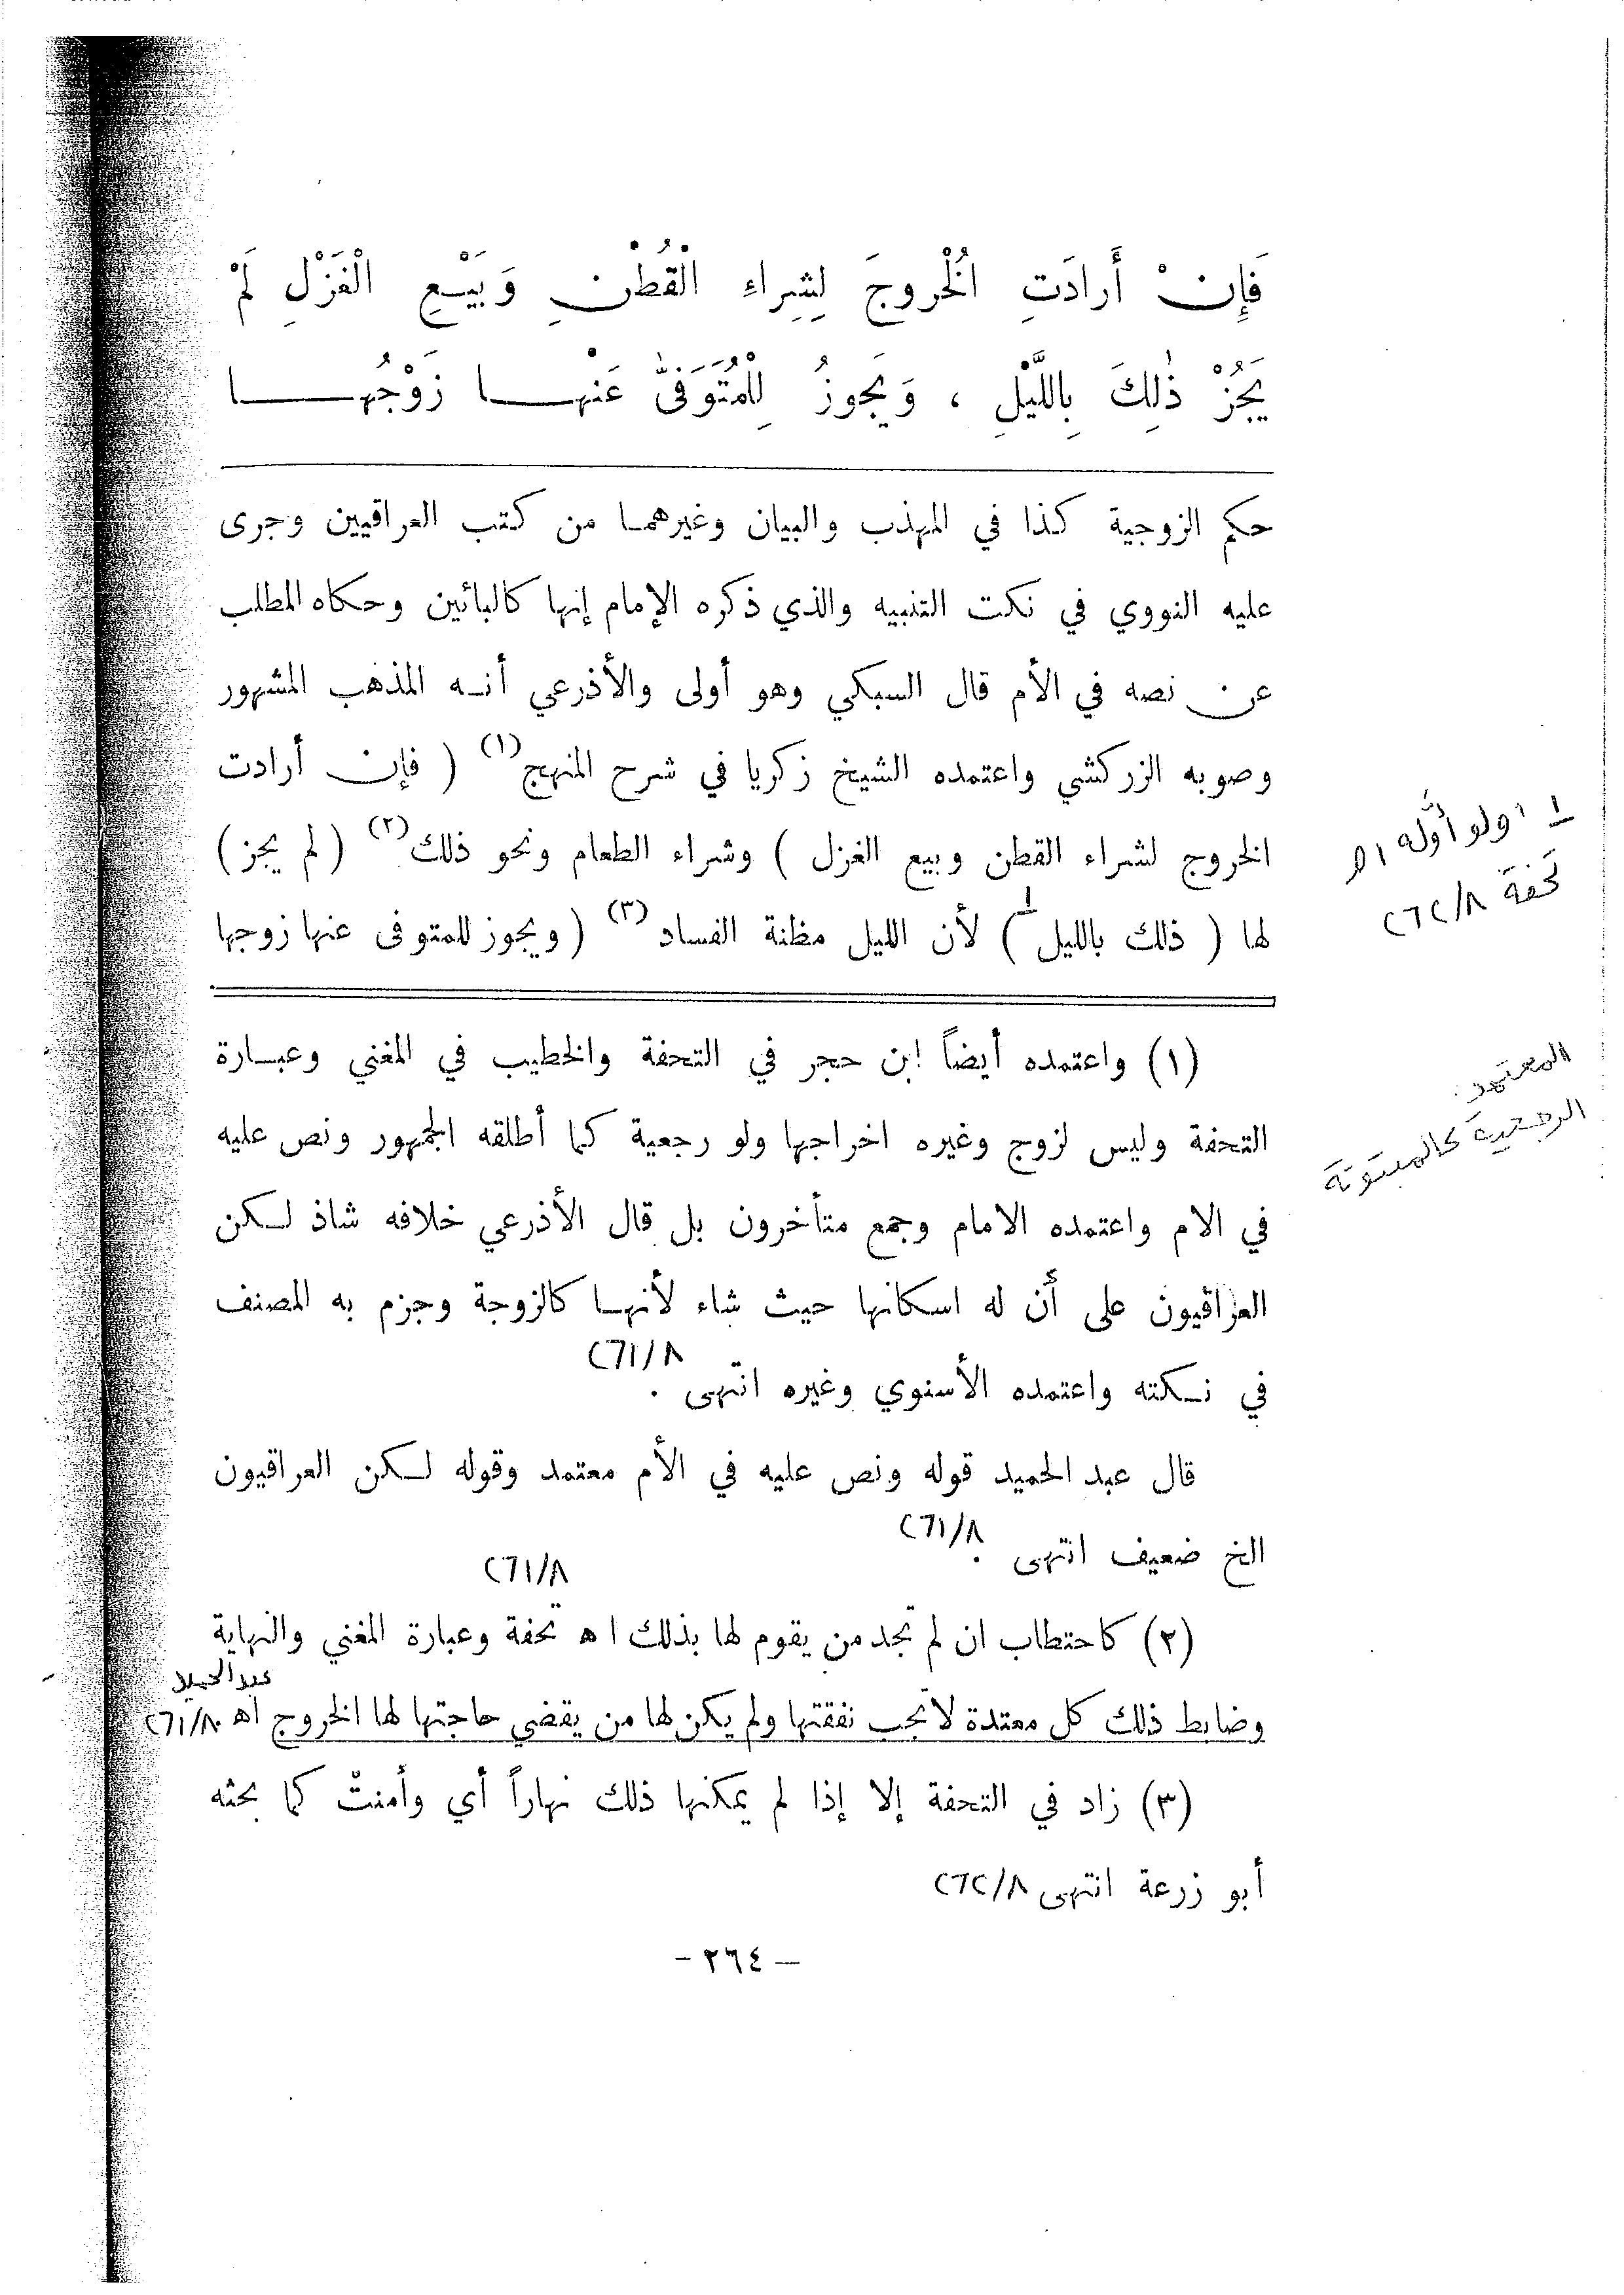 فَإِنْ أَرادَتِ الْخُروجَ لِشِراءِ الْقُطْنِ وَبَيْعِ الْغَزْلِ لَمْ
يَجُزْ ذٰلِكَ بِاللَّيْلِ ، وَيَجوزُ لِلْمُتَوَفَّىٰ عَنْها زَوْجُها
حكم الزوجية كذا في المهذب والبيان وغيرهما من كتب العراقيين وجرى
عليه النووي في نكت التنبيه والذي ذكره الإمام إنها كالبائين وحكاه المطلب
عن نصه في الأم قال السبكي وهو أولى والأذرعي أنه المذهب المشهور
وصوبه الزركشي واعتمده الشيخ زكريا في شرح المنهج (١) ( فإن أرادت
الخروج لشراء القطن وبيع الغزل ) وشراء الطعام ونحو ذلك (٢) ( لم يجز )
لها ( ذلك بالليل ١ ) لأن الليل مظنة الفساد (٣) ( ويجوز للمتوفى عنها زوجها
١ ولو أوّله اه
تحفة ٢٦٢/٨
(١) واعتمده أيضاً ابن حجر في التحفة والخطيب في المغني وعبارة
التحفة وليس لزوج وغيره اخراجها ولو رجعية كما أطلقه الجمهور ونص عليه
في الام واعتمده الامام وجمع متأخرون بل قال الأذرعي خلافه شاذ لكن
العراقيون على أن له اسكانها حيث شاء لأنها كالزوجة وجزم به المصنف
في نكته واعتمده الأسنوي وغيره انتهى . ٢٦١/٨
المعتمد :
الرجعية كالمبتوتة
قال عبد الحميد قوله ونص عليه في الأم معتمد وقوله لكن العراقيون
الخ ضعيف انتهى . ٢٦١/٨
٢٦١/٨
(٢) كاحتطاب ان لم تجد من يقوم لها بذلك اه تحفة وعبارة المغني والنهاية
وضابط ذلك كل معتدة لا تجب نفقتها ولم يكن لها من يقضي حاجتها لها الخروج اه . عبد الحميد ٢٦١/٨
(٣) زاد في التحفة إلا إذا لم يمكنها ذلك نهاراً أي وأمنتْ كما بحثه
أبو زرعة انتهى ٢٦٢/٨
– ٢٦٤ –